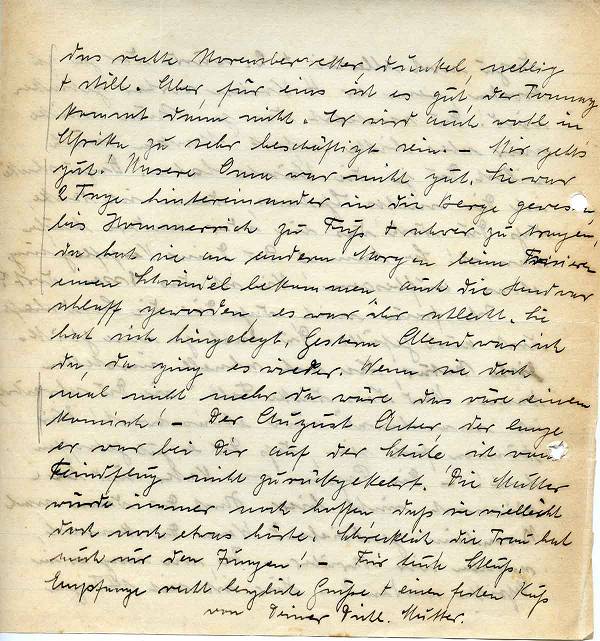 das rechte Novemberwetter, dunkel, neblig
+ still. Aber für eins ist es gut der Tommy
kommt dann nicht. Er wird auch wohl in
Afrika zu sehr beschäftigt sein. – Mir geht's
gut! Unsere Oma war nicht gut. Sie war
2 Tage hintereinander in die Berge gewesen,
bis Hommerich zu Fuß + schwer zu tragen,
da hat sie am anderen Morgen beim Frisieren
einen Schwindel bekommen auch die Hand war
schlaff geworden es war ihr schlecht. Sie
hat sich hingelegt. Gestern Abend war ich
da, da ging es wieder. Wenn sie doch
mal nicht mehr da wäre das wäre einem
komisch! – Der August, der lange
er war bei Dir auf der Schule ist vom
Feindflug nicht zurückgekehrt. Die Mutter
würde immer noch hoffen daß sie vielleicht
doch noch etwas hörte. Schrecklich die Frau hat
auch nur den Jungen! – Für heute Schluß.
Empfange recht herzliche Grüße + einen festen Kuß
von Deiner Dichl. Mutter.